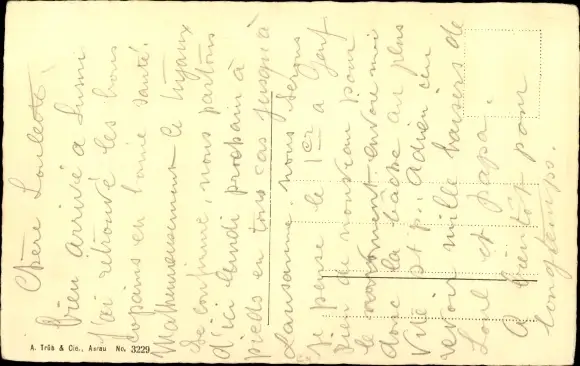 Chère Loulotte!
Bien arrivé à
J'ai retrouvé les bons
copains en bonne santé.
Malheureusement le tuyaux
se confirme, nous partons
d'ici lundi prochain à
pieds en tous cas jusqu'à
Lausanne. nous serons
je pense le 1er à Genf
rien de nouveau pour
le moment envoie moi
donc la bâche au plus
vite st. p. Adieu
revoir mille baisers de
Loul et papa.
A bientôt pour
longtemps.
A. Trüb & Cie., Aarau No. 3229